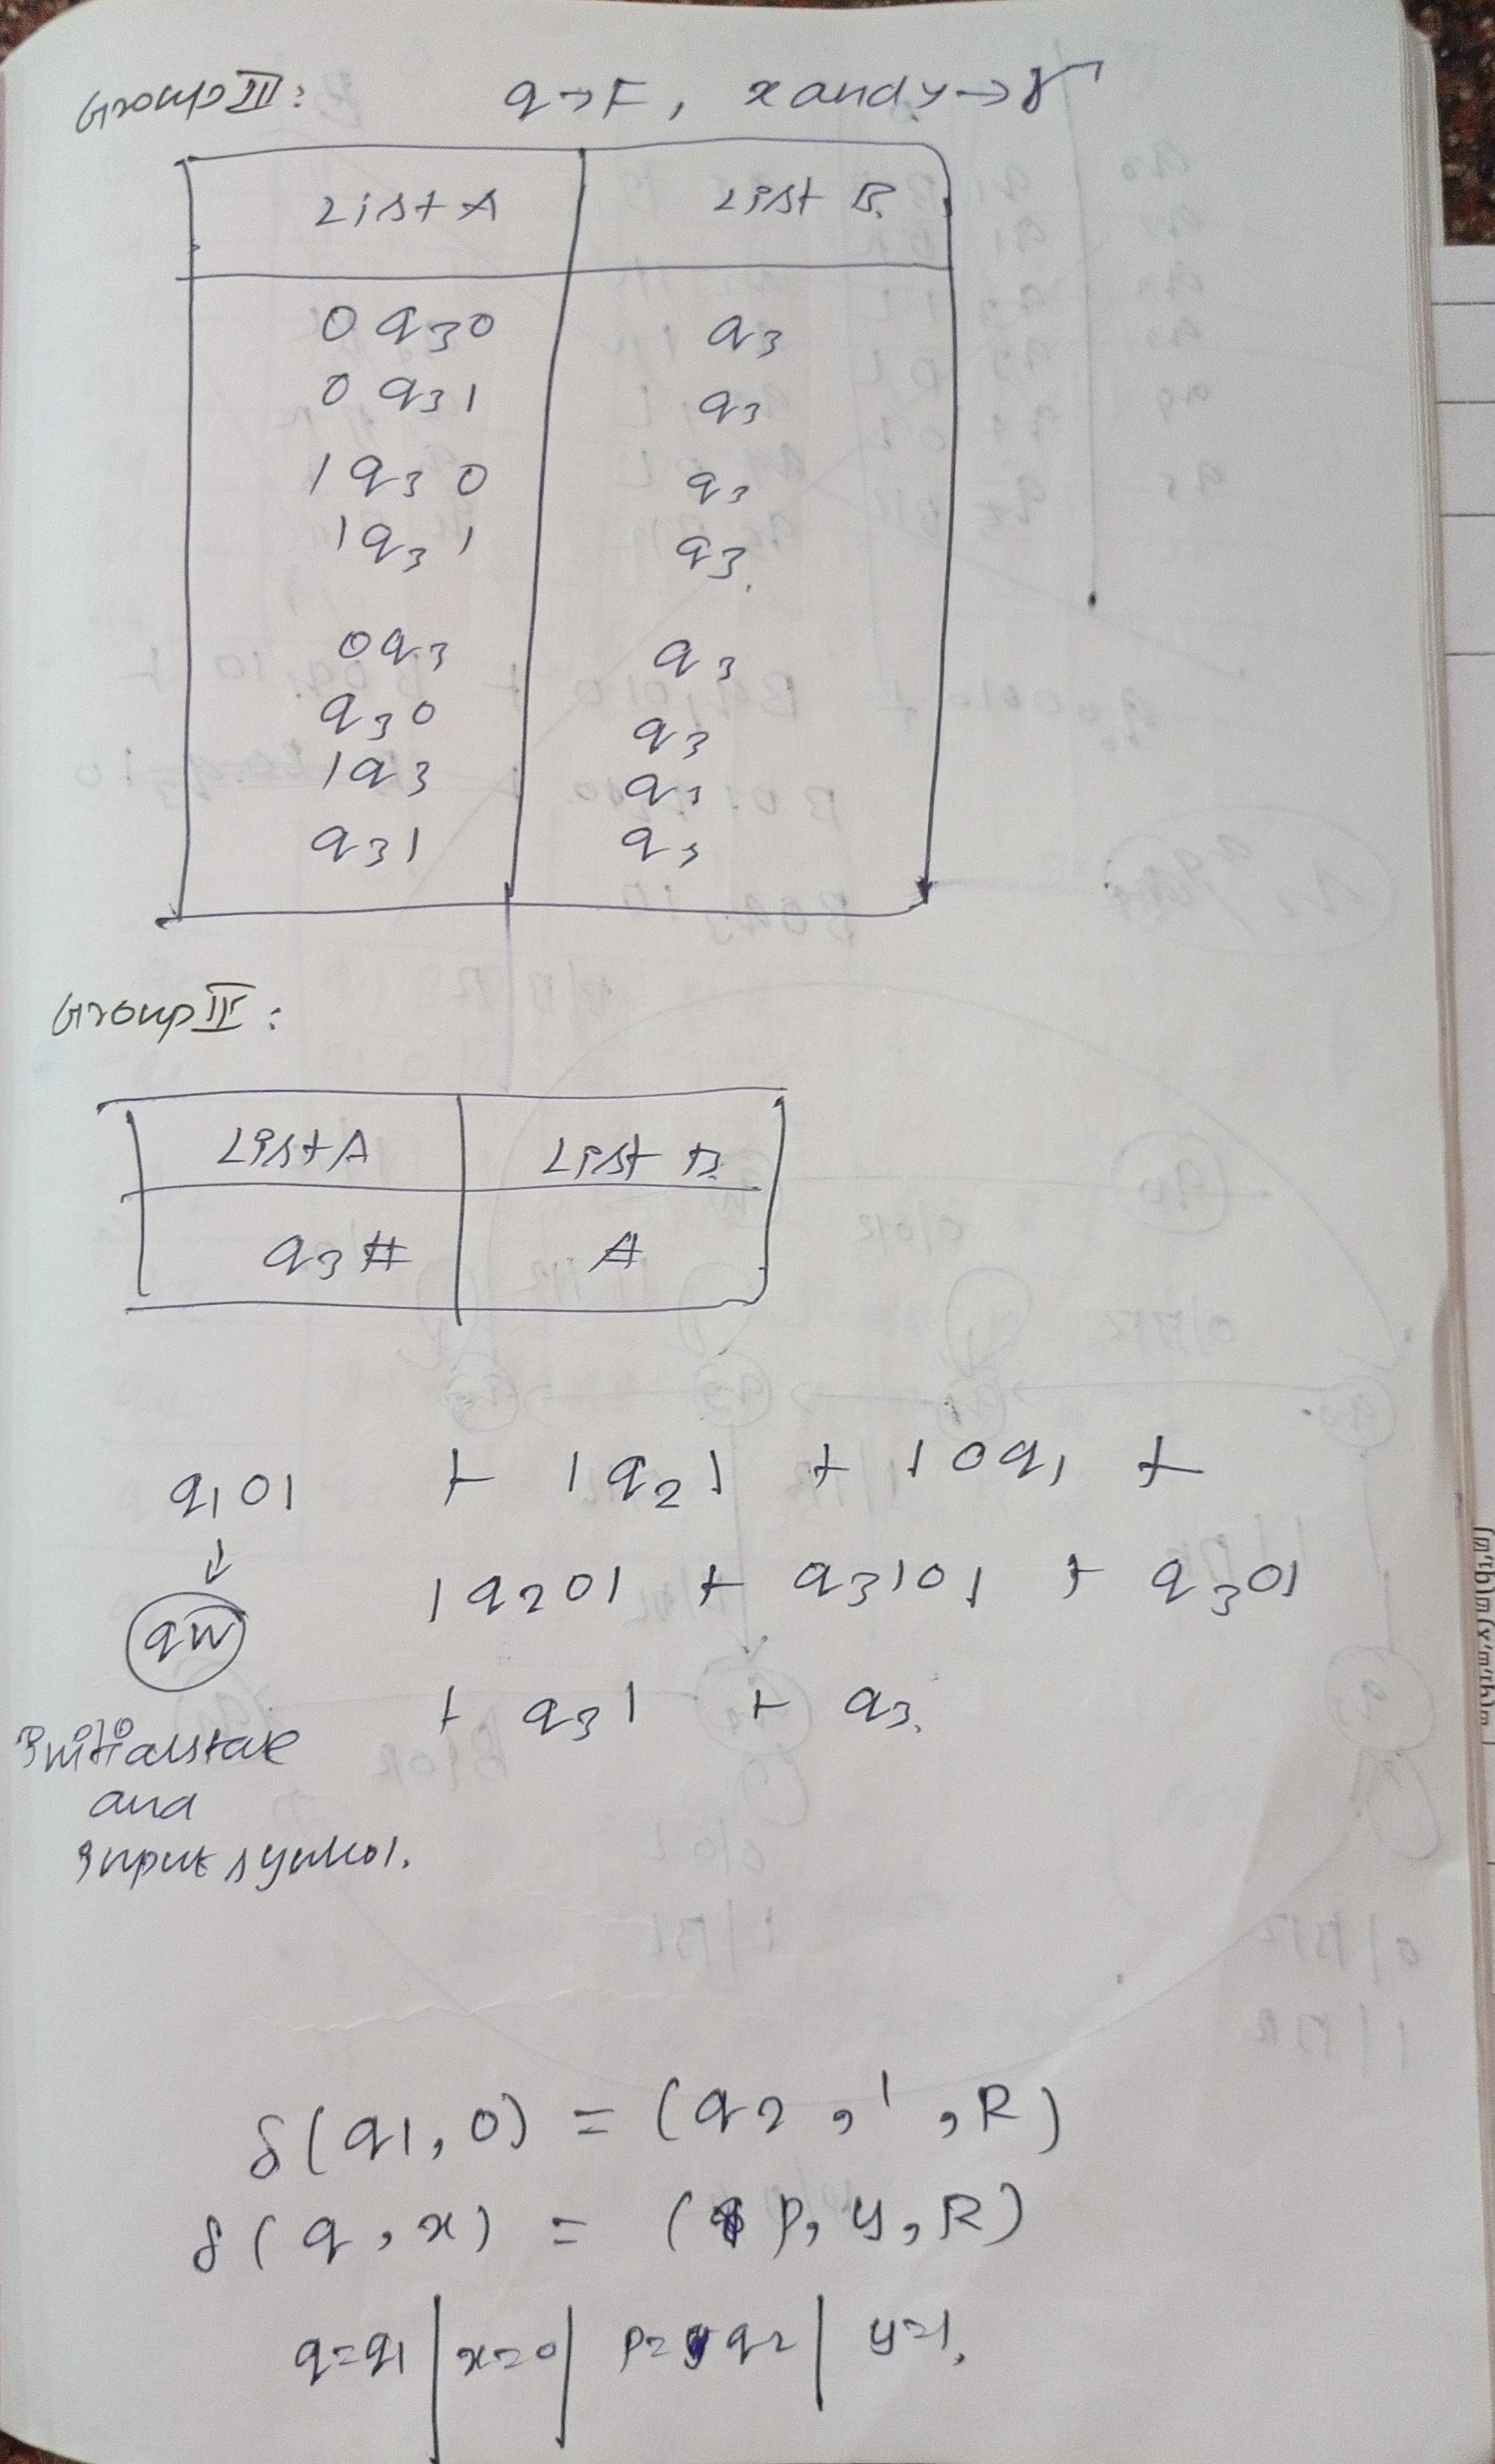 Group III: q → F, x and y → Γ
List A List B.
0 q3 0 q3
0 q3 1 q3
1 q3 0 q3
1 q3 1 q3.
0 q3 q3
q3 0 q3
1 q3 q3
q3 1 q3
Group IV:
List A List B
q3 # #
q1 01 ⊢ 1 q2 1 ⊢ 1 0 q1 ⊢
↓
qw
1 q2 01 ⊢ q3 101 ⊢ q3 01
⊢ q3 1 ⊢ q3.
Initial state
and
Input symbol.
δ(q1, 0) = (q2, 1, R)
δ(q, x) = (p, y, R)
q=q1 | x=0 | p=q2 | y=1.